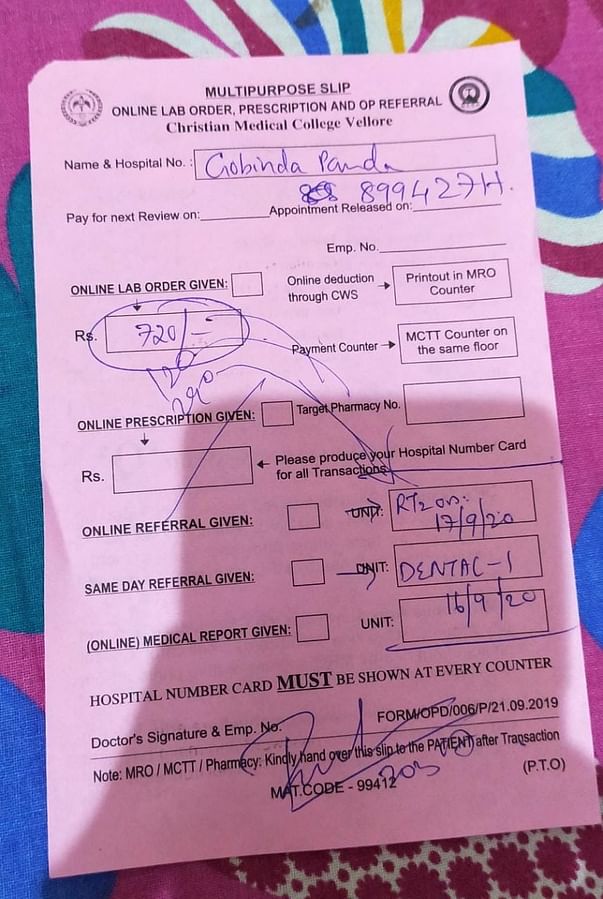 MULTIPURPOSE SLIP
ONLINE LAB ORDER, PRESCRIPTION AND OP REFERRAL
Christian Medical College Vellore
Name & Hospital No. : Gobinda Panda
899427H.
Pay for next Review on: Appointment Released on:
Emp. No.
ONLINE LAB ORDER GIVEN: Online deduction through CWS Printout in MRO Counter
Rs. 720/-
Payment Counter MCTT Counter on the same floor
120
ONLINE PRESCRIPTION GIVEN: Target Pharmacy No.
Rs. Please produce your Hospital Number Card for all Transactions
ONLINE REFERRAL GIVEN: UNIT: RT2 on:
17/9/20
SAME DAY REFERRAL GIVEN: UNIT: DENTAL-1
16/9/20
(ONLINE) MEDICAL REPORT GIVEN: UNIT:
HOSPITAL NUMBER CARD MUST BE SHOWN AT EVERY COUNTER
Doctor's Signature & Emp. No. FORM/OPD/006/P/21.09.2019
Note: MRO / MCTT / Pharmacy: Kindly hand over this slip to the PATIENT after Transaction
MAT.CODE - 99412 (P.T.O)